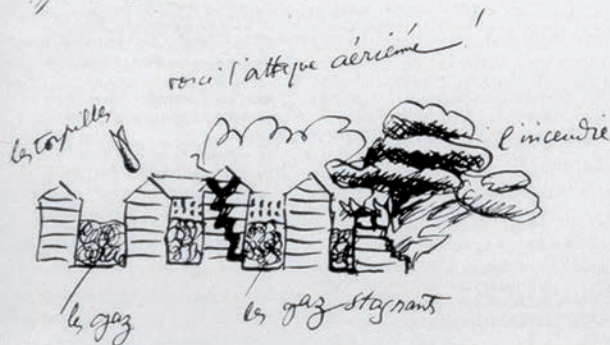 voici l'attaque aérienne !
les torpilles
l'incendie
les gaz
les gaz stagnants